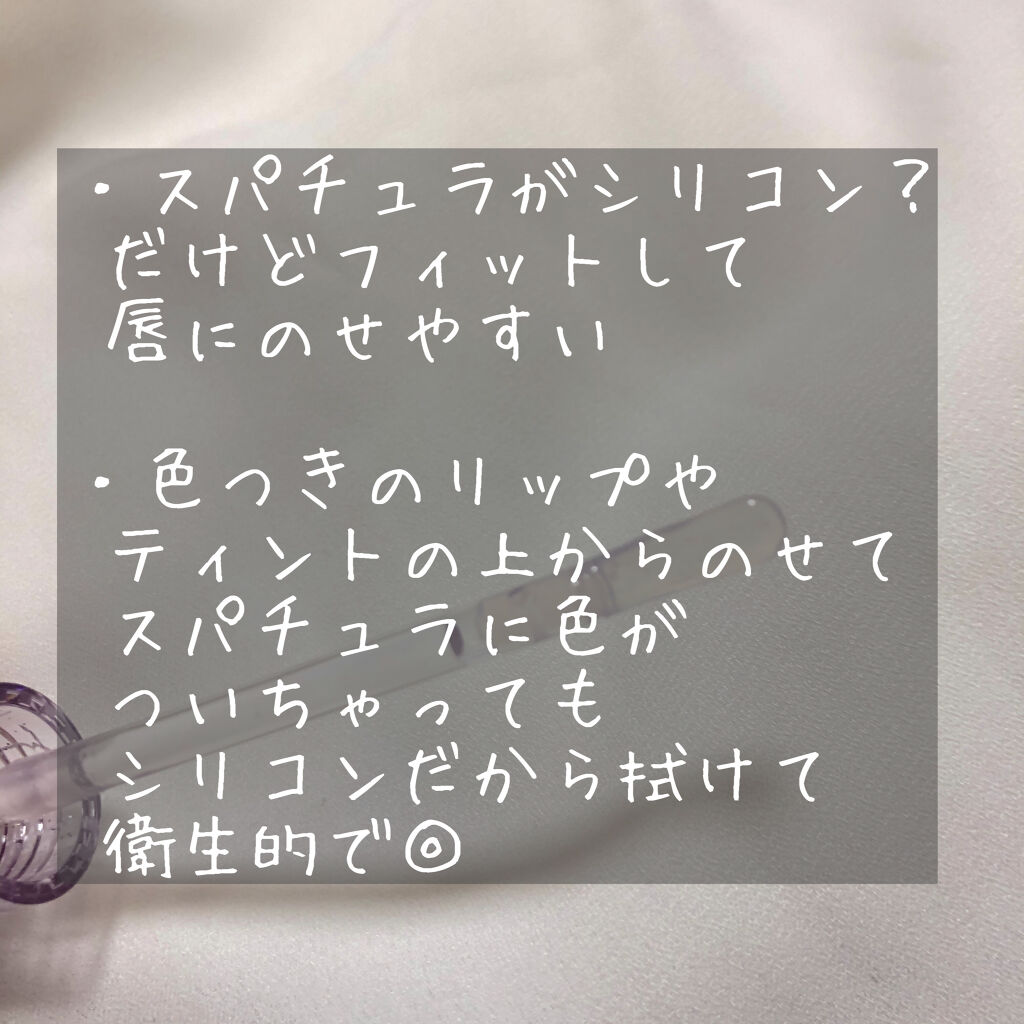 ・スパチュラがシリコン？
だけどフィットして
唇にのせやすい
・色つきのリップや
ティントの上からのせて
スパチュラに色が
ついちゃっても
シリコンだから拭けて
衛生的で◎